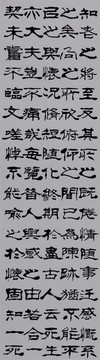 知老之將至及其所之既惓情隨事遷感慨係
之矣向之所欣俛仰之閒以為陳迹猶不能不
以之興懷況脩短隨化終期於盡古人云死生
亦大矣豈不痛哉每攬昔人興感之由若合一
契未嘗不臨文嗟悼不能喻之於懷固知一死